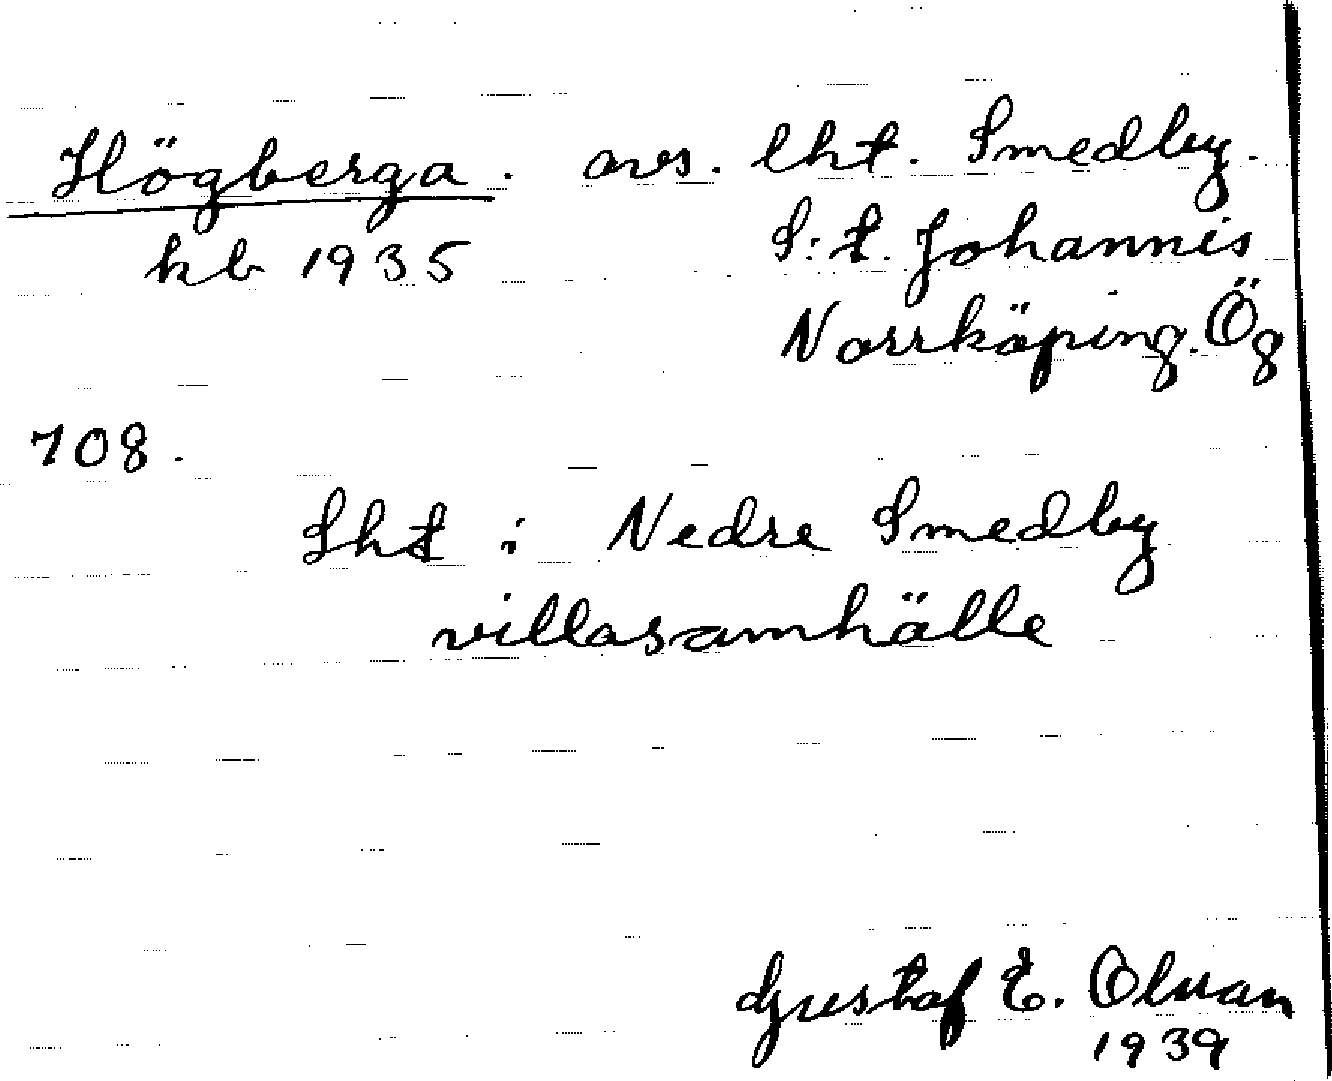 Högberga. avs. lht. Smedby.
kb 1935 S:t. Johannis
Norrköping. Ög
708.
Lht i Nedre Smedby
villasamhälle
Gustaf E. Olman
1939